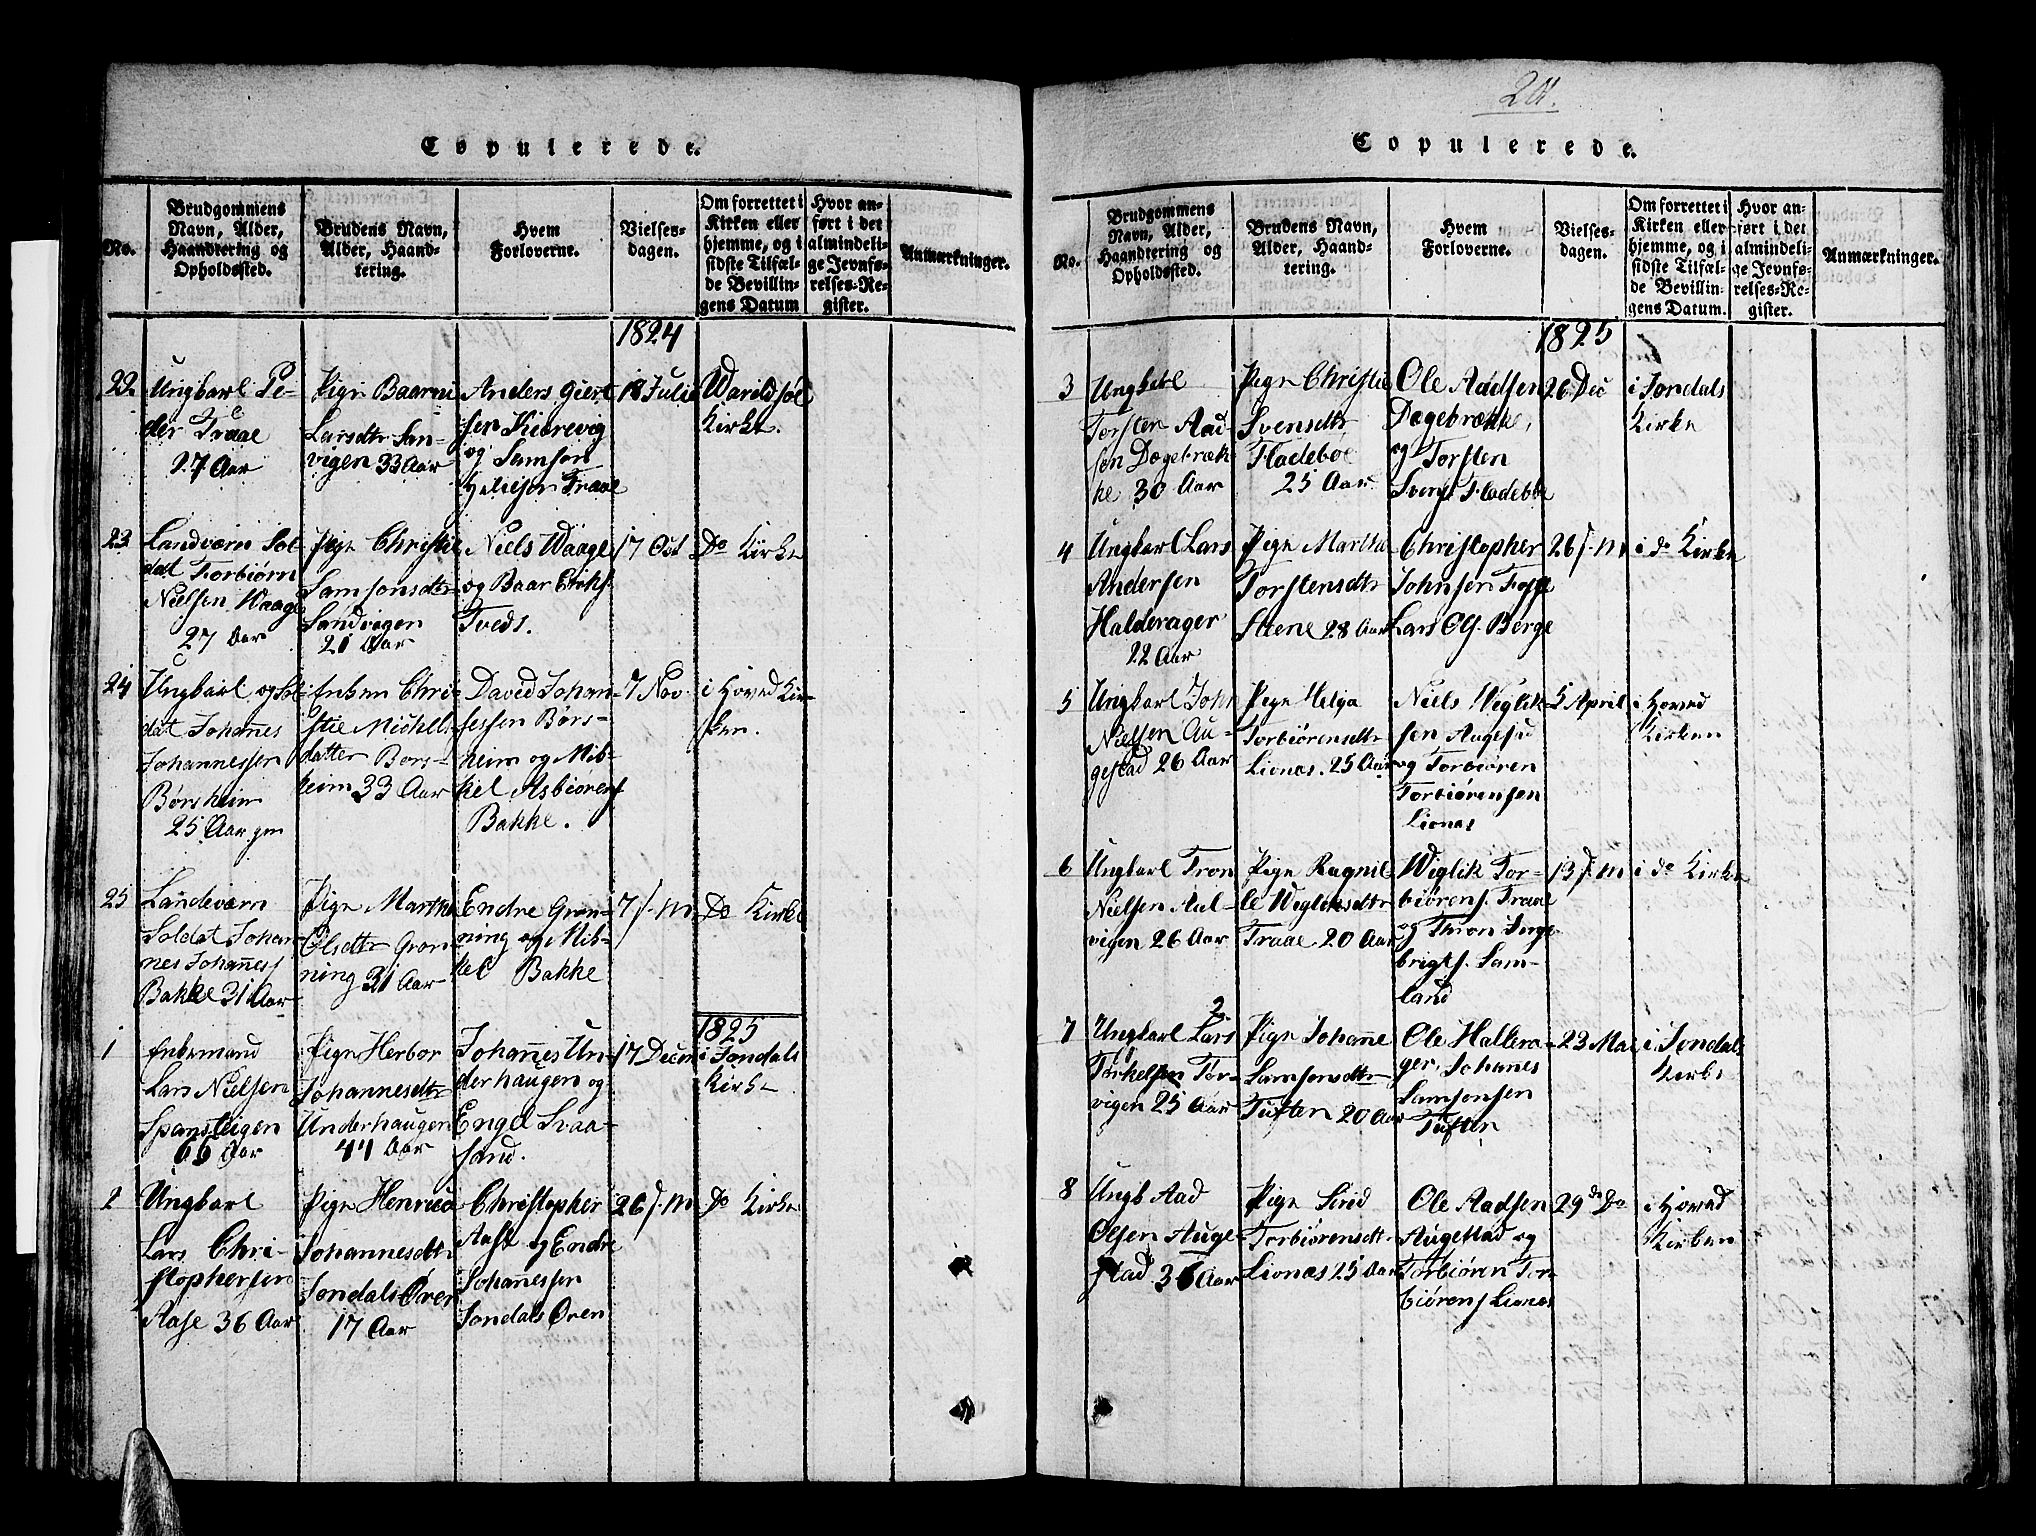 Copulerede.
No.
Brudgommens
Navn, Alder,
Haandtering og
Opholdssted.
Brudens Navn,
Alder, Haand-
tering.
Hvem
Forloverne.
Vielses-
dagen.
Om forrettet i
Kirken eller
hjemme, og i
sidste Tilfæl-
de Bevillin-
gens Datum
Hvor an-
ført i det
almindeli-
ge Jevnfø-
relses-Re-
gister.
Anmærkninger.
1824
22
Ungkarl Pe-
der Traae
27 Aar
Pige Baarni
Larsdtr San-
vigen 33 Aar
Anders Giert
sen Kierevig
og Samson
Traae
18 Julii
Warildsøe
Kirke.
23
Landværn Sol
dat Torbiørn
Nielsen Waage
27 Aar
Pige Christie
Samsonsdtr
Sandvigen
21 Aar
Niels Waage
og Baar Eriks.
Tveds.
17 Oct
Do Kirke
24
Ungkarl og Sol-
dat Johannes
Johannessen
Børsheim
25 Aar gm
Enken Chri-
stie Michels
datter Børs-
heim 33 Aar
David Johan-
nessen Børs-
heim og Mik-
kel Asbiørens
Bakke.
7 Nov.
i Hoved Kir-
ken.
25
Landeværn
Soldat Johan
nes Johanness
Bakke 31 Aar
Pige Martha
Olsdtr Grøn-
ning 31 Aar
Endre Grøn-
ning og Mik-
kel Bakke
7 s. M
Do Kirke
1825
1
Enkemand
Lars Nielsen
Spansteigen
66 Aar
Pige Herbor
Johannesdtr
Underhaugen
44 Aar
Johannes Un-
derhaugen og
Engel Svaa-
sand.
17 Decm
i Jondals
Kirke
2
Ungkarl
Lars Chri-
stophersen
Aase 36 Aar
Pige Henrica
Johannesdtr
Jondals Øren
17 Aar
Christopher
Aase og Endre
Johannessen
Jondals Øren
26 s. M
Do Kirke
Copulerede.
No.
Brudgommens
Navn, Alder,
Haandtering og
Opholdssted.
Brudens Navn,
Alder, Haand-
tering.
Hvem
Forloverne.
Vielses-
dagen.
Om forrettet i
Kirken eller
hjemme, og i
sidste Tilfæl-
de Bevillin-
gens Datum.
Hvor an-
ført i det
almindeli-
ge Jevnfø-
relses-Re-
gister.
Anmærkninger.
1825
3
Ungkarl
Torsten Aad-
sen Døgebræk-
ke 30 Aar
Pige Christie
Svensdtr
Fladebøe
25 Aar
Ole Aadsen
Døgebrække,
og Torsten
Svens. Fladebøe
26 Dec
i Jondals
Kirke
4
Ungkarl Lars
Andersen
Halderager
22 Aar
Pige Martha
Torstensdtr
Steene 28 Aar
Christopher
Johnsen
Lars Ols. Berge
26 s. M
i do Kirke
5
Ungkarl John
Nielsen Au-
gestad 26 Aar
Pige Helga
Torbiørensdtr
Lionæs. 25 Aar
Niels Wiglik-
sen Augestad
og Torbiøren
Torbiørensen
Lionæs
5 April
i Hoved
Kirken
6
Ungkarl Tron
Nielsen Aal-
vigen 26 Aar
Pige Ragnil-
le Wigliksdtr
Traae 20 Aar
Wiglik Tor-
biørens. Traae
og Thron Inge-
brigts. Sam-
land
13 s. M
i do Kirke
7
Ungkarl Lars
Torkelsen Tor-
vigen 25 Aar
Pige Johanne
Samsonsdtr
Tuften 20 Aar
Ole Hallera-
ger, Johannes
Samsonsen
Tuften
23 Mai
i Jondals
Kirke
8
Ungk Aad
Olsen Auge-
stad 36 Aar
Pige Sirid
Torbiørensdtr
Lionæs 25 Aar
Ole Aadsen
Augestad og
Torbiøren Tor-
biørens Lionæs
29 de Do
i Hoved
Kirken